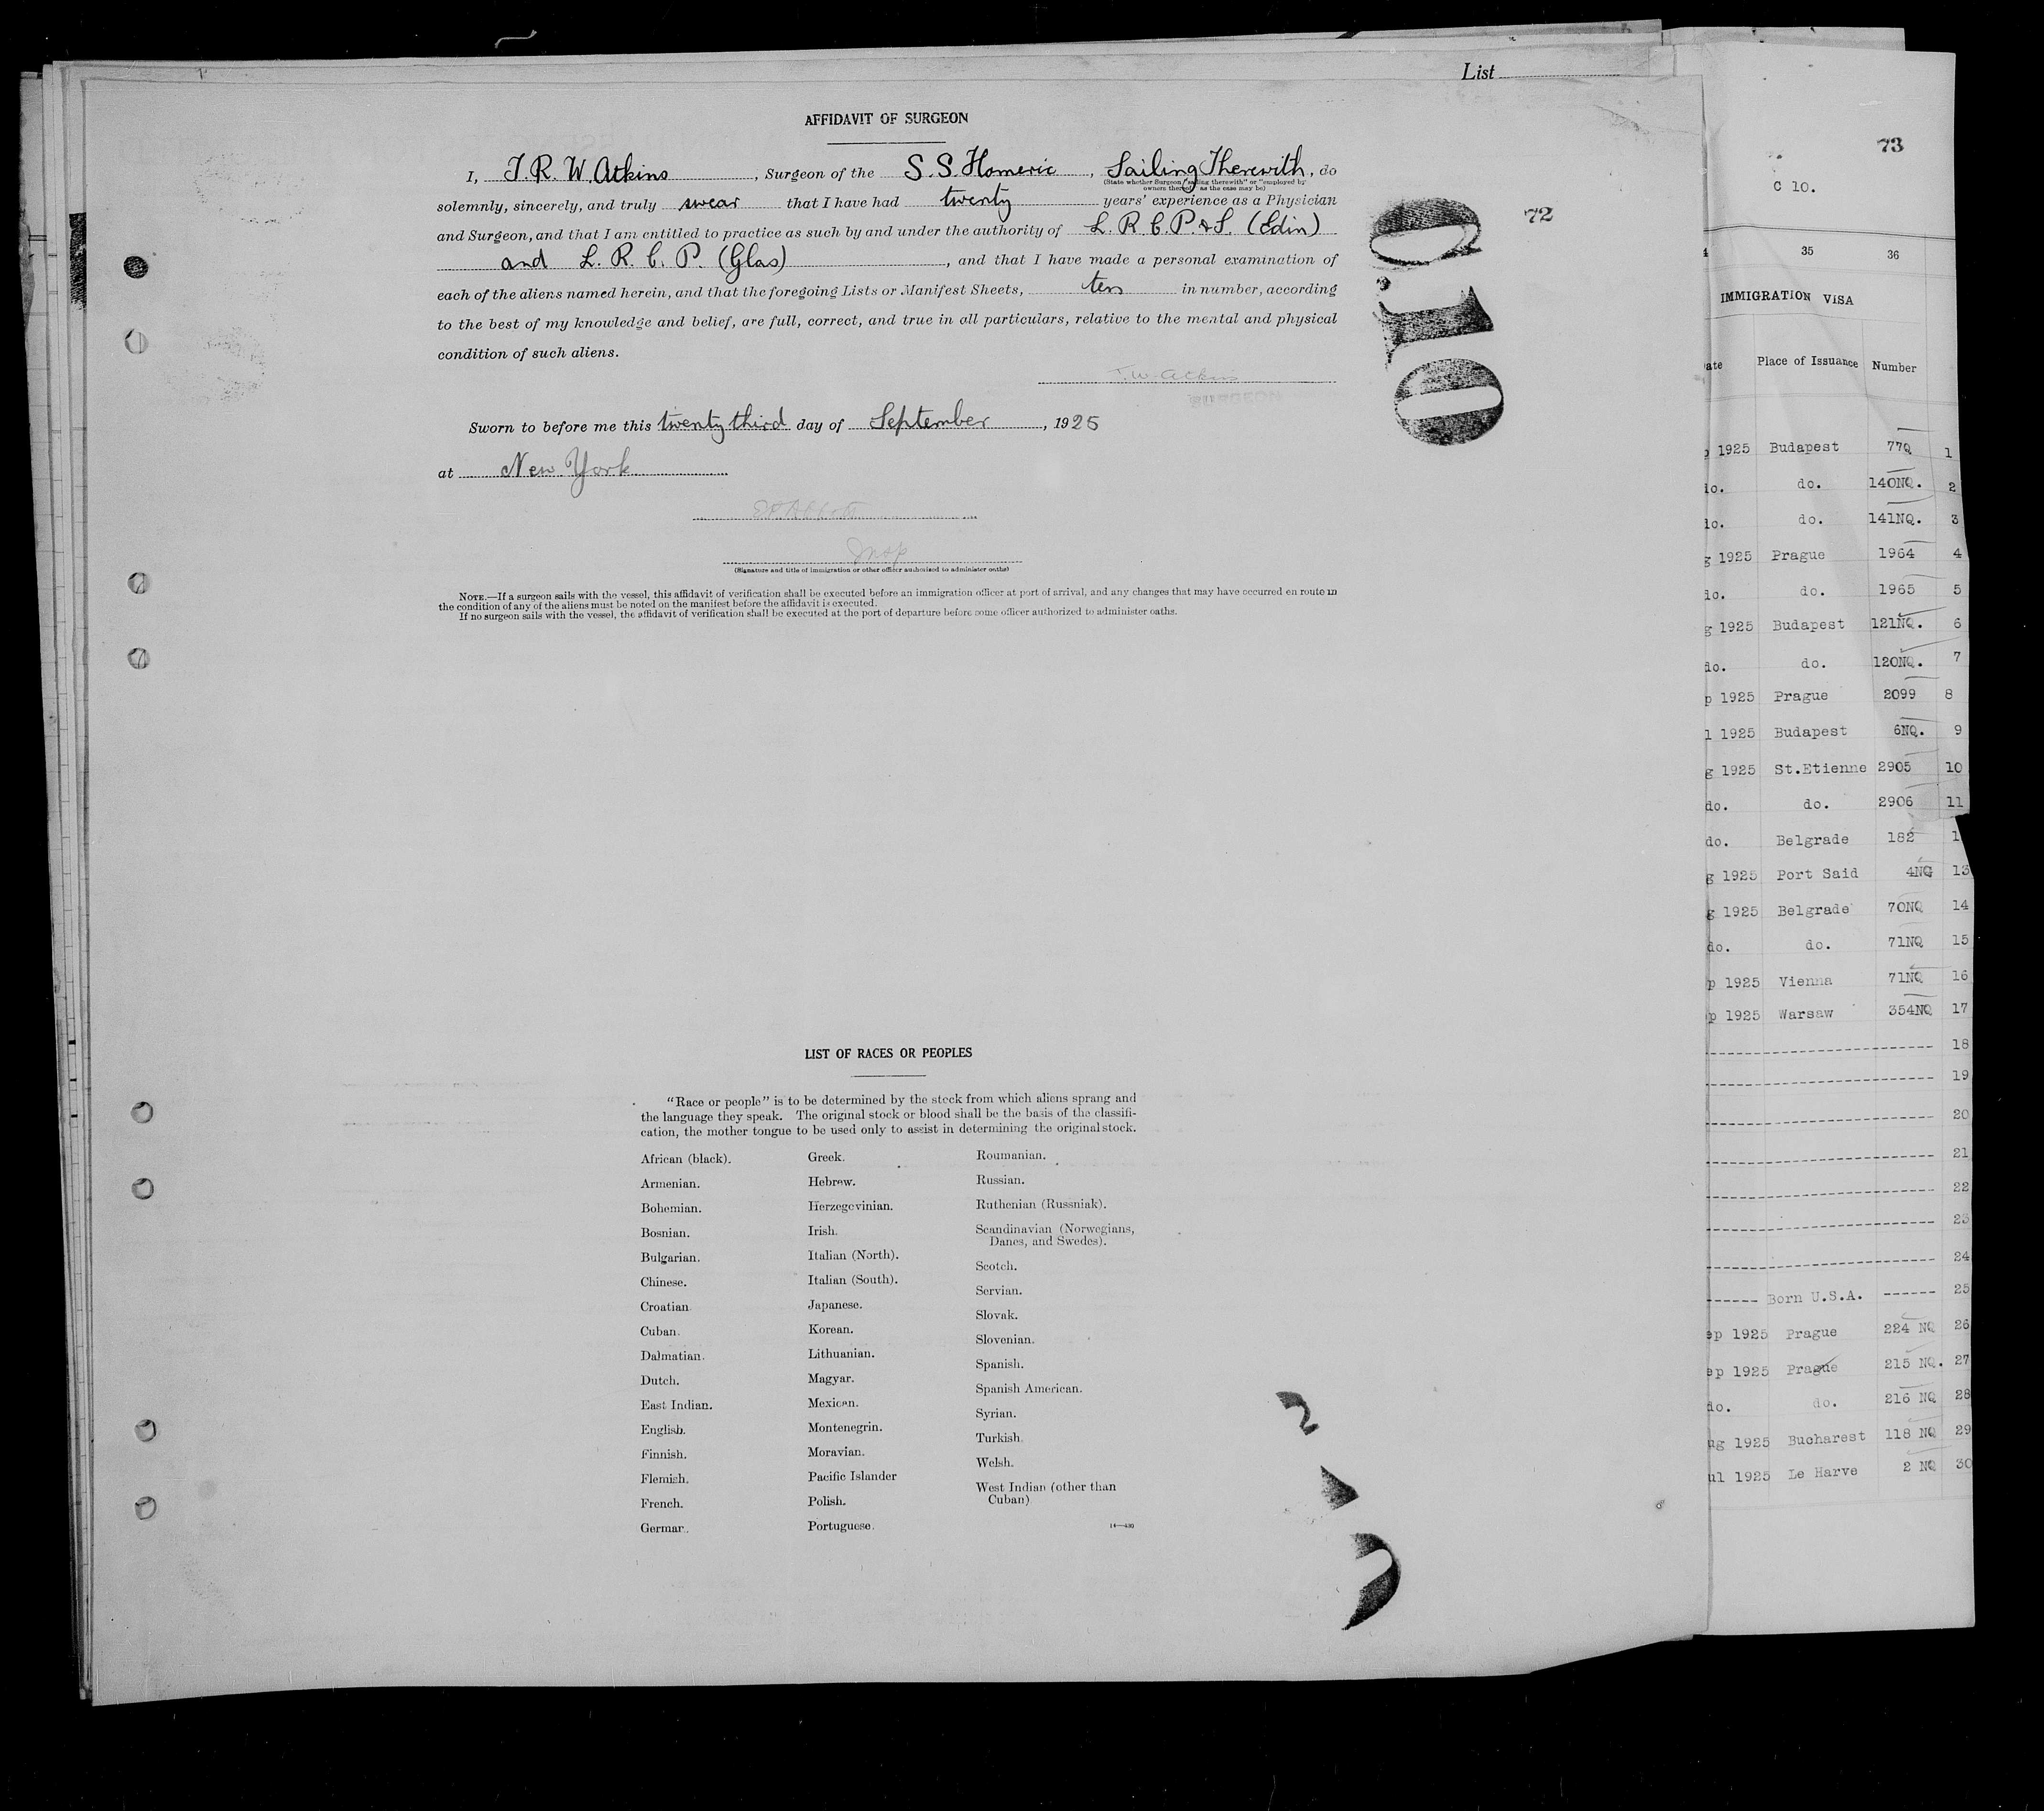 List
AFFIDAVIT OF SURGEON
I, T. R. W. Atkins, Surgeon of the S. S. Homeric, Sailing Therewith, do
(State whether Surgeon "sailing therewith" or "employed by owners thereof" as the case may be)
solemnly, sincerely, and truly swear that I have had twenty years' experience as a Physician
and Surgeon, and that I am entitled to practice as such by and under the authority of L. R. C. P. & S. (Edin)
and L. R. C. P. (Glas), and that I have made a personal examination of
each of the aliens named herein, and that the foregoing Lists or Manifest Sheets, ten in number, according
to the best of my knowledge and belief, are full, correct, and true in all particulars, relative to the mental and physical
condition of such aliens.
T. W. Atkins
SURGEON
Sworn to before me this twenty third day of September, 1925
at New York
Insp
(Signature and title of immigration or other officer authorized to administer oaths)
NOTE.—If a surgeon sails with the vessel, this affidavit of verification shall be executed before an immigration officer at port of arrival, and any changes that may have occurred en route in
the condition of any of the aliens must be noted on the manifest before the affidavit is executed.
If no surgeon sails with the vessel, the affidavit of verification shall be executed at the port of departure before some officer authorized to administer oaths.
010
72
LIST OF RACES OR PEOPLES
"Race or people" is to be determined by the stock from which aliens sprang and
the language they speak. The original stock or blood shall be the basis of the classifi-
cation, the mother tongue to be used only to assist in determining the original stock.
African (black).
Armenian.
Bohemian.
Bosnian.
Bulgarian.
Chinese.
Croatian.
Cuban.
Dalmatian.
Dutch.
East Indian.
English.
Finnish.
Flemish.
French.
German.
Greek.
Hebrew.
Herzegovinian.
Irish.
Italian (North).
Italian (South).
Japanese.
Korean.
Lithuanian.
Magyar.
Mexican.
Montenegrin.
Moravian.
Pacific Islander
Polish.
Portuguese.
Roumanian.
Russian.
Ruthenian (Russniak).
Scandinavian (Norwegians,
Danes, and Swedes).
Scotch.
Servian.
Slovak.
Slovenian.
Spanish.
Spanish American.
Syrian.
Turkish.
Welsh.
West Indian (other than
Cuban)
14—430
73
C 10.
35 36
IMMIGRATION VISA
ate Place of Issuance Number
p 1925 Budapest 77Q 1
do. do. 140NQ. 2
do. do. 141NQ. 3
g 1925 Prague 1964 4
do. do. 1965 5
g 1925 Budapest 121NQ. 6
do. do. 120NQ. 7
p 1925 Prague 2099 8
l 1925 Budapest 6NQ. 9
g 1925 St.Etienne 2905 10
do. do. 2906 11
do. Belgrade 182 1
g 1925 Port Said 4NQ 13
g 1925 Belgrade 70NQ 14
do. do. 71NQ 15
p 1925 Vienna 71NQ 16
p 1925 Warsaw 354NQ 17
18
19
20
21
22
23
24
------ Born U.S.A. ------ 25
ep 1925 Prague 224 NQ 26
ep 1925 Prague 215 NQ. 27
do. do. 216 NQ 28
ug 1925 Bucharest 118 NQ 29
ul 1925 Le Harve 2 NQ 30